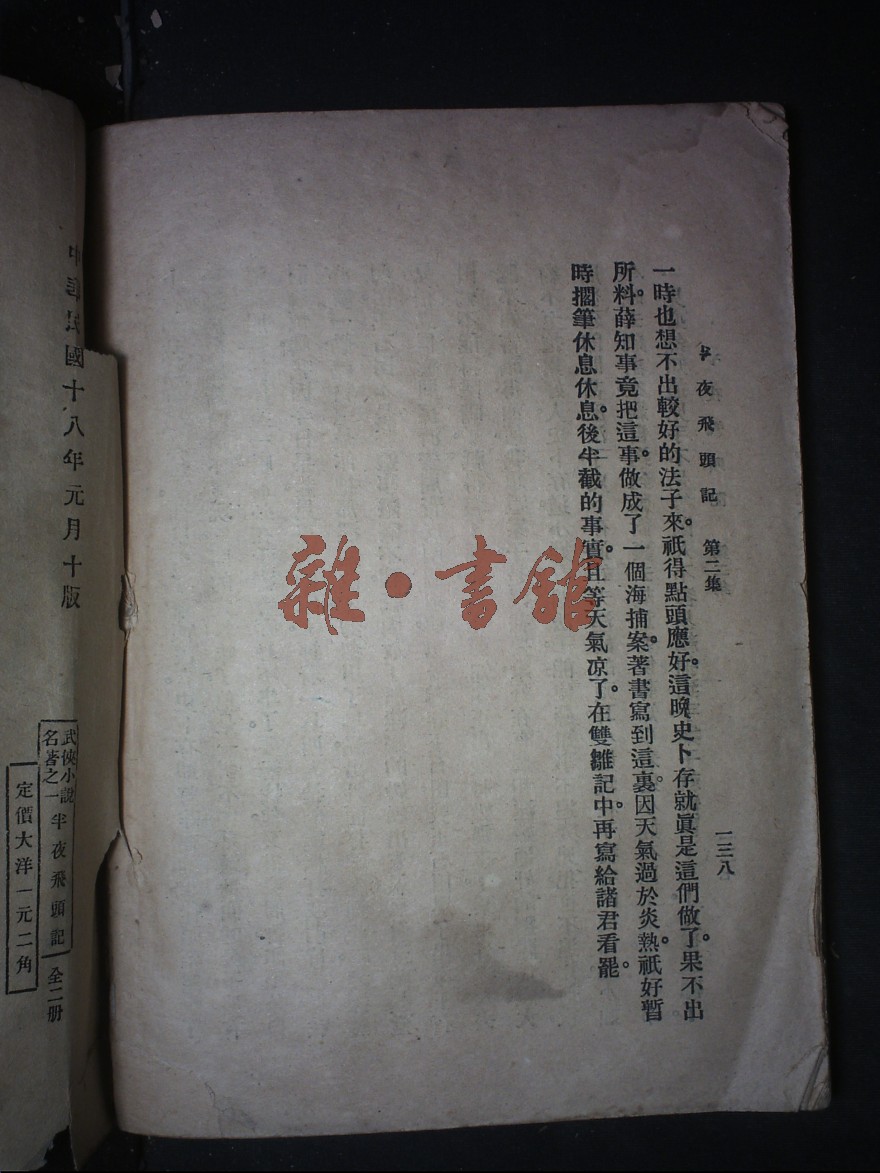 半夜飛頭記　第二集　一三八
一時也想不出較好的法子來。祇得點頭應好。這晚史卜存就眞是這們做了。果不出
所料。薛知事竟把這事。做成了一個海捕案。著書寫到這裏。因天氣過於炎熱。祇好暫
時擱筆休息休息。後半截的事實。且等天氣凉了。在雙雛記中。再寫給諸君看罷。
雜·書館
中華民國十八年元月十版
武俠小說名著之一
半夜飛頭記
全二册
定價大洋一元二角